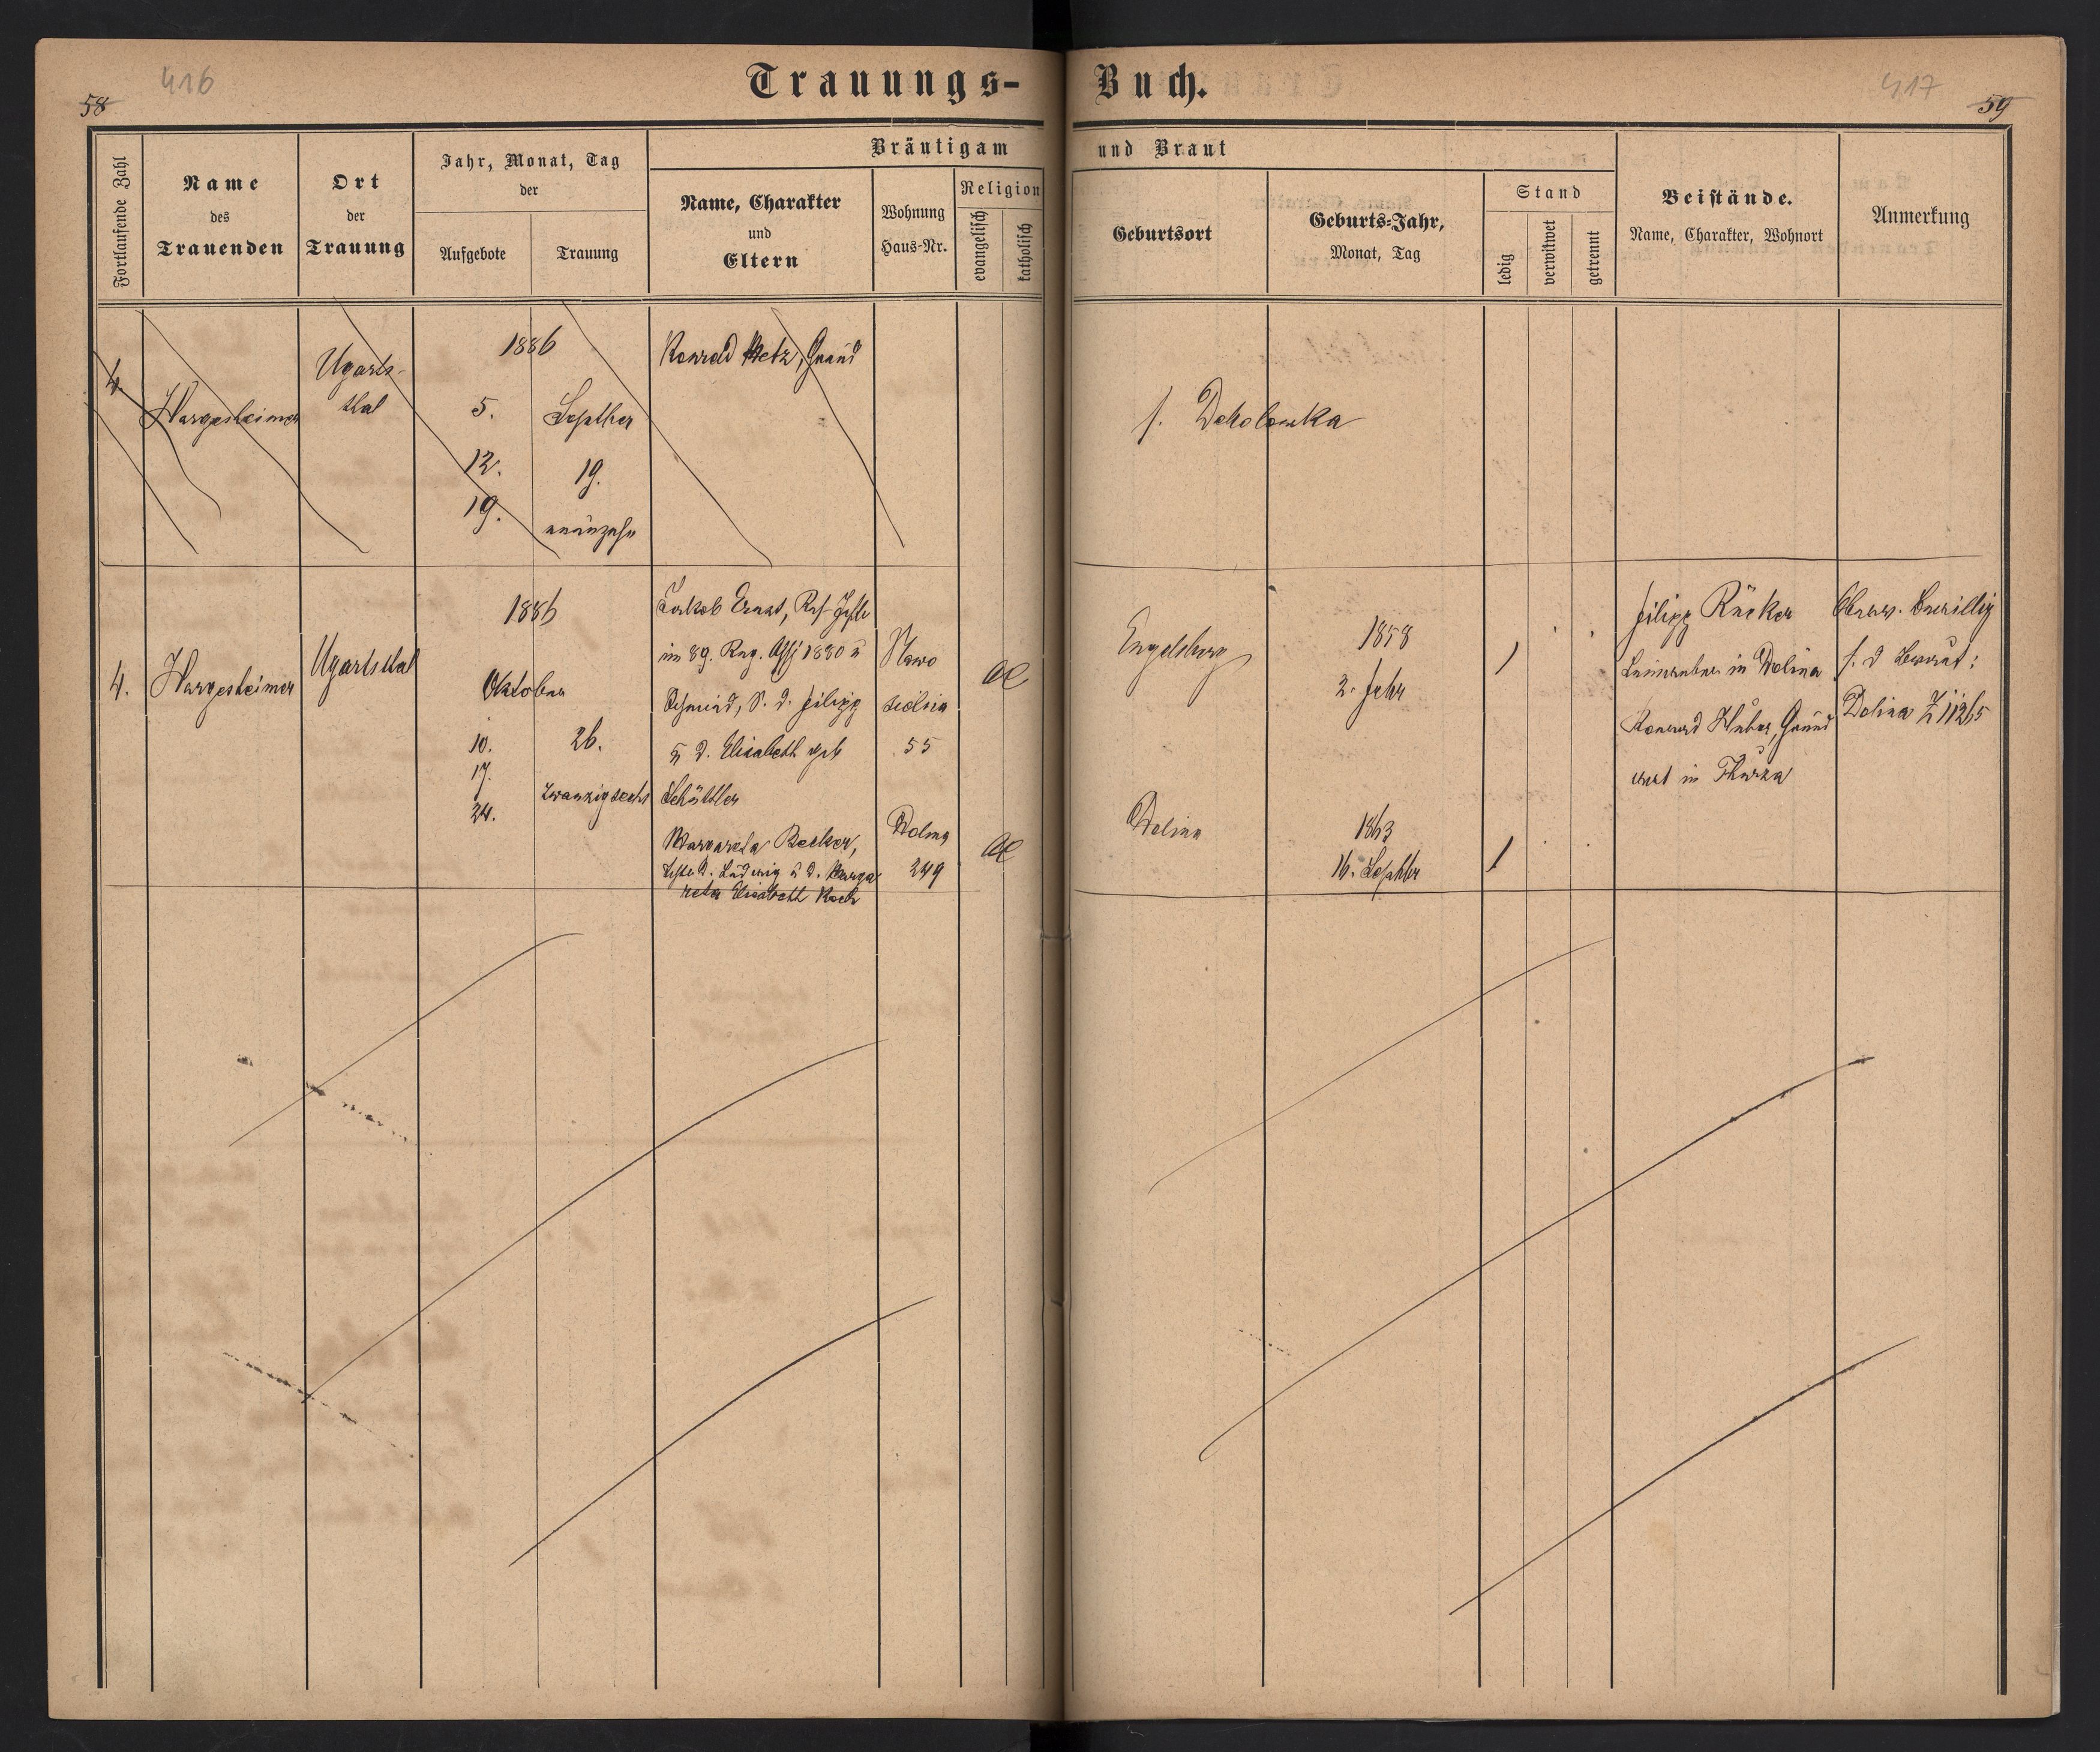 416
58
Trauungs-
Fortlaufende Zahl
Name
des
Trauenden
Ort
der
Trauung
Jahr, Monat, Tag
der
Aufgebote
Trauung
Bräutigam
Name, Charakter
und
Eltern
Wohnung
Haus-Nr.
Religion
evangelisch
katholisch
4.
Hargesheimer
Ugarts-
thal
1886
5.
12.
19.
Septber
19.
neunzehn
Konrad Metz, Grund
4.
Hargesheimer
Ugartsthal
1886
Oktober
10.
17.
24.
26.
zwanzigsechs
Jakob Ernst, Res
im 89. Reg. 1880 u
Schmied, S. d. Filipp
u d. Elisabeth geb
Schüttler
Nowo
sielica
55
Margareta Becker,
d. Ludwig u d. Marga
reta Elisabeth Koch
Dolina
249
417
59
Buch.
und Braut
Geburtsort
Geburts-Jahr,
Monat, Tag
Stand
ledig
verwitwet
getrennt
Beistände.
Name, Charakter, Wohnort
Anmerkung
f.
Engelsberg
1858
2. Febr
1
Dolina
1863
16. Septbr
1
Filipp Rücker
in Dolina
Konrad Huber, Grund
wirt in Thurza
f. d Braut:
Dolina Z 11265